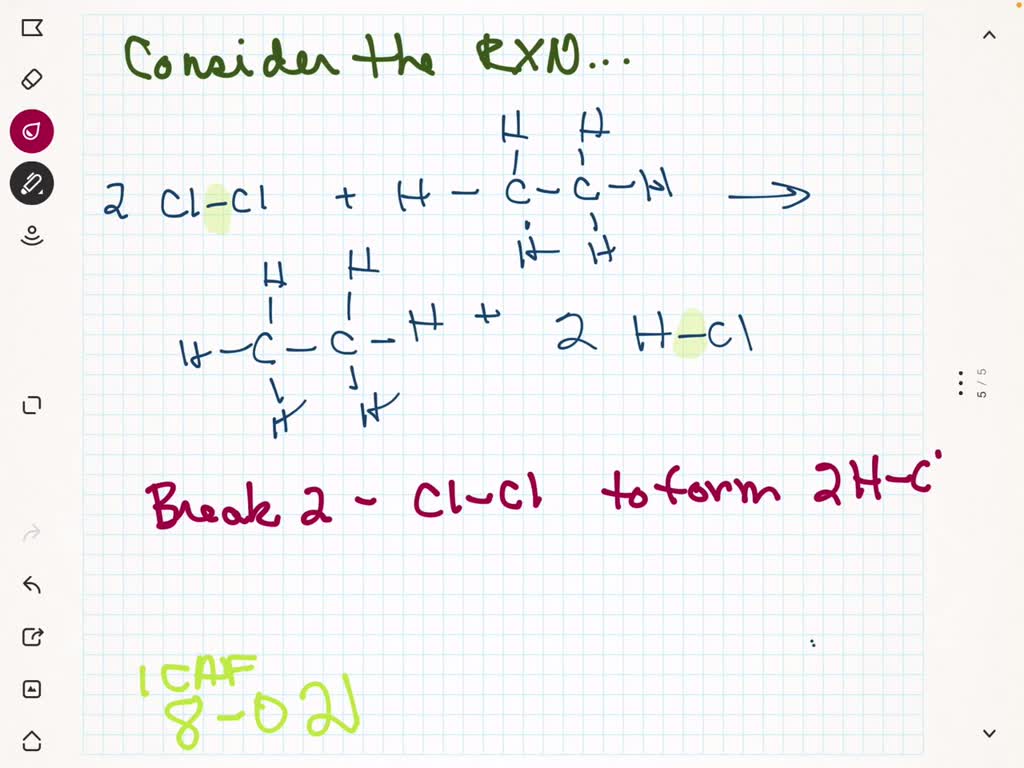 Consider the RXN...
H H
2 Cl-Cl + H - C - C - H →
H H
H H
H - C - C - H + 2 H-Cl
H H
Break 2 - Cl-Cl to form 2H-C
1CAF
8-021
5/5